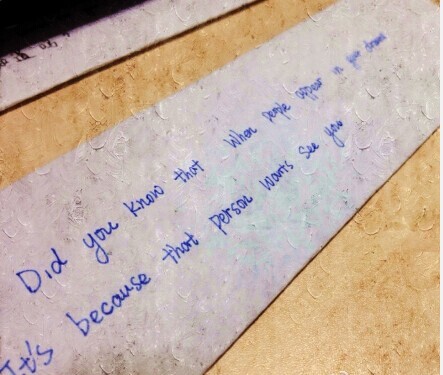 Did you know that when people appear in your dreams
It's because that person wants see you